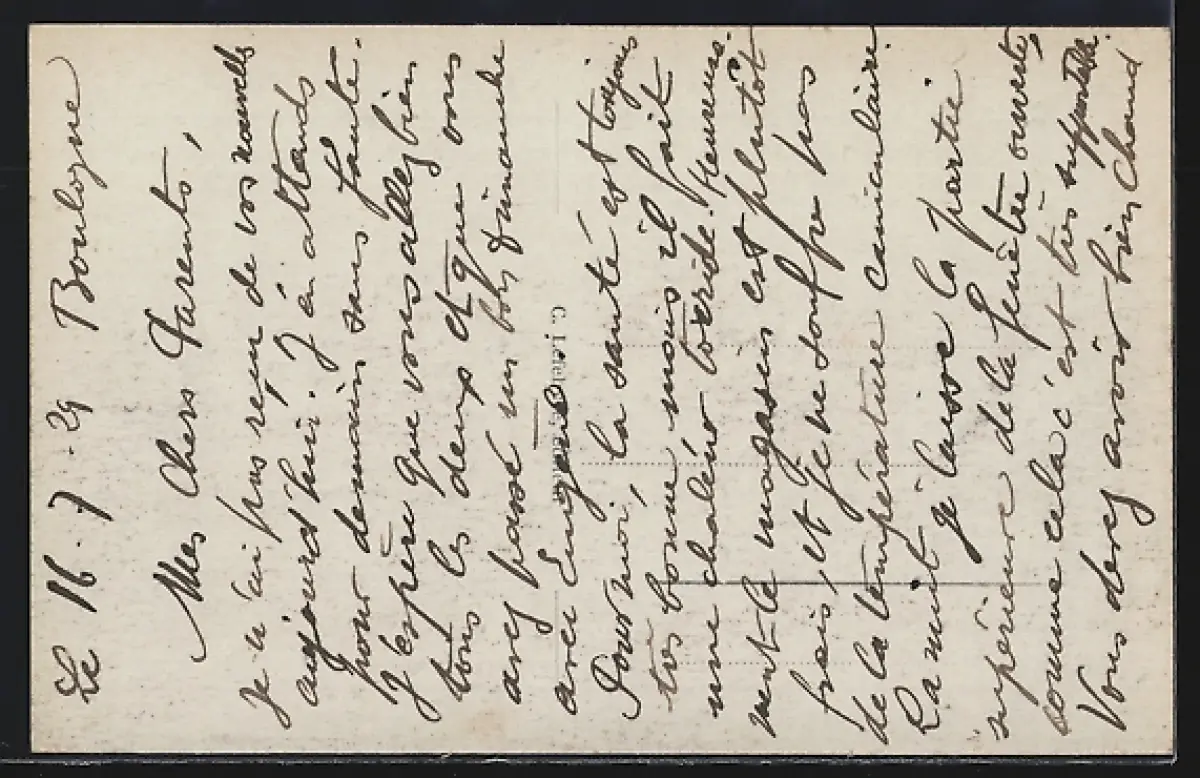 Le 16.7.29 Boulogne
Mes Chers Parents,
Je n'ai pas reçu de vos nouvelles
aujourd'hui. J'en attends
pour demain sans faute.
J'espère que vous allez bien
tous les deux et que vous
avez passé un bon Dimanche
avec Eugène.
Pour moi, la santé est toujours
très bonne mais il fait
une chaleur torride. Heureuse-
ment le magasin est plutôt
frais, et je ne souffre pas
de la température caniculaire.
La nuit je laisse la partie
supérieure de la fenêtre ouverte,
comme cela c'est très supportable.
Vous devez avoir bien chaud